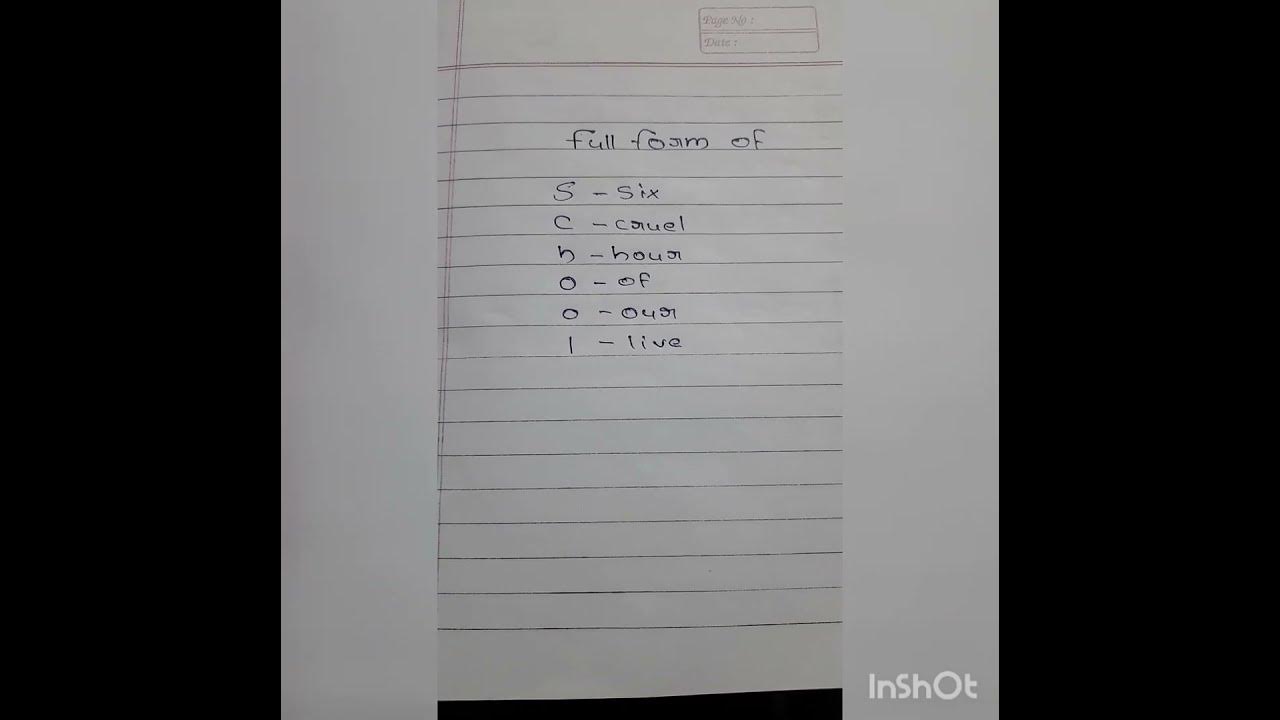 Page No :
Date :
full form of
S - Six
C - cruel
h - hour
o - of
o - our
l - live
InShOt